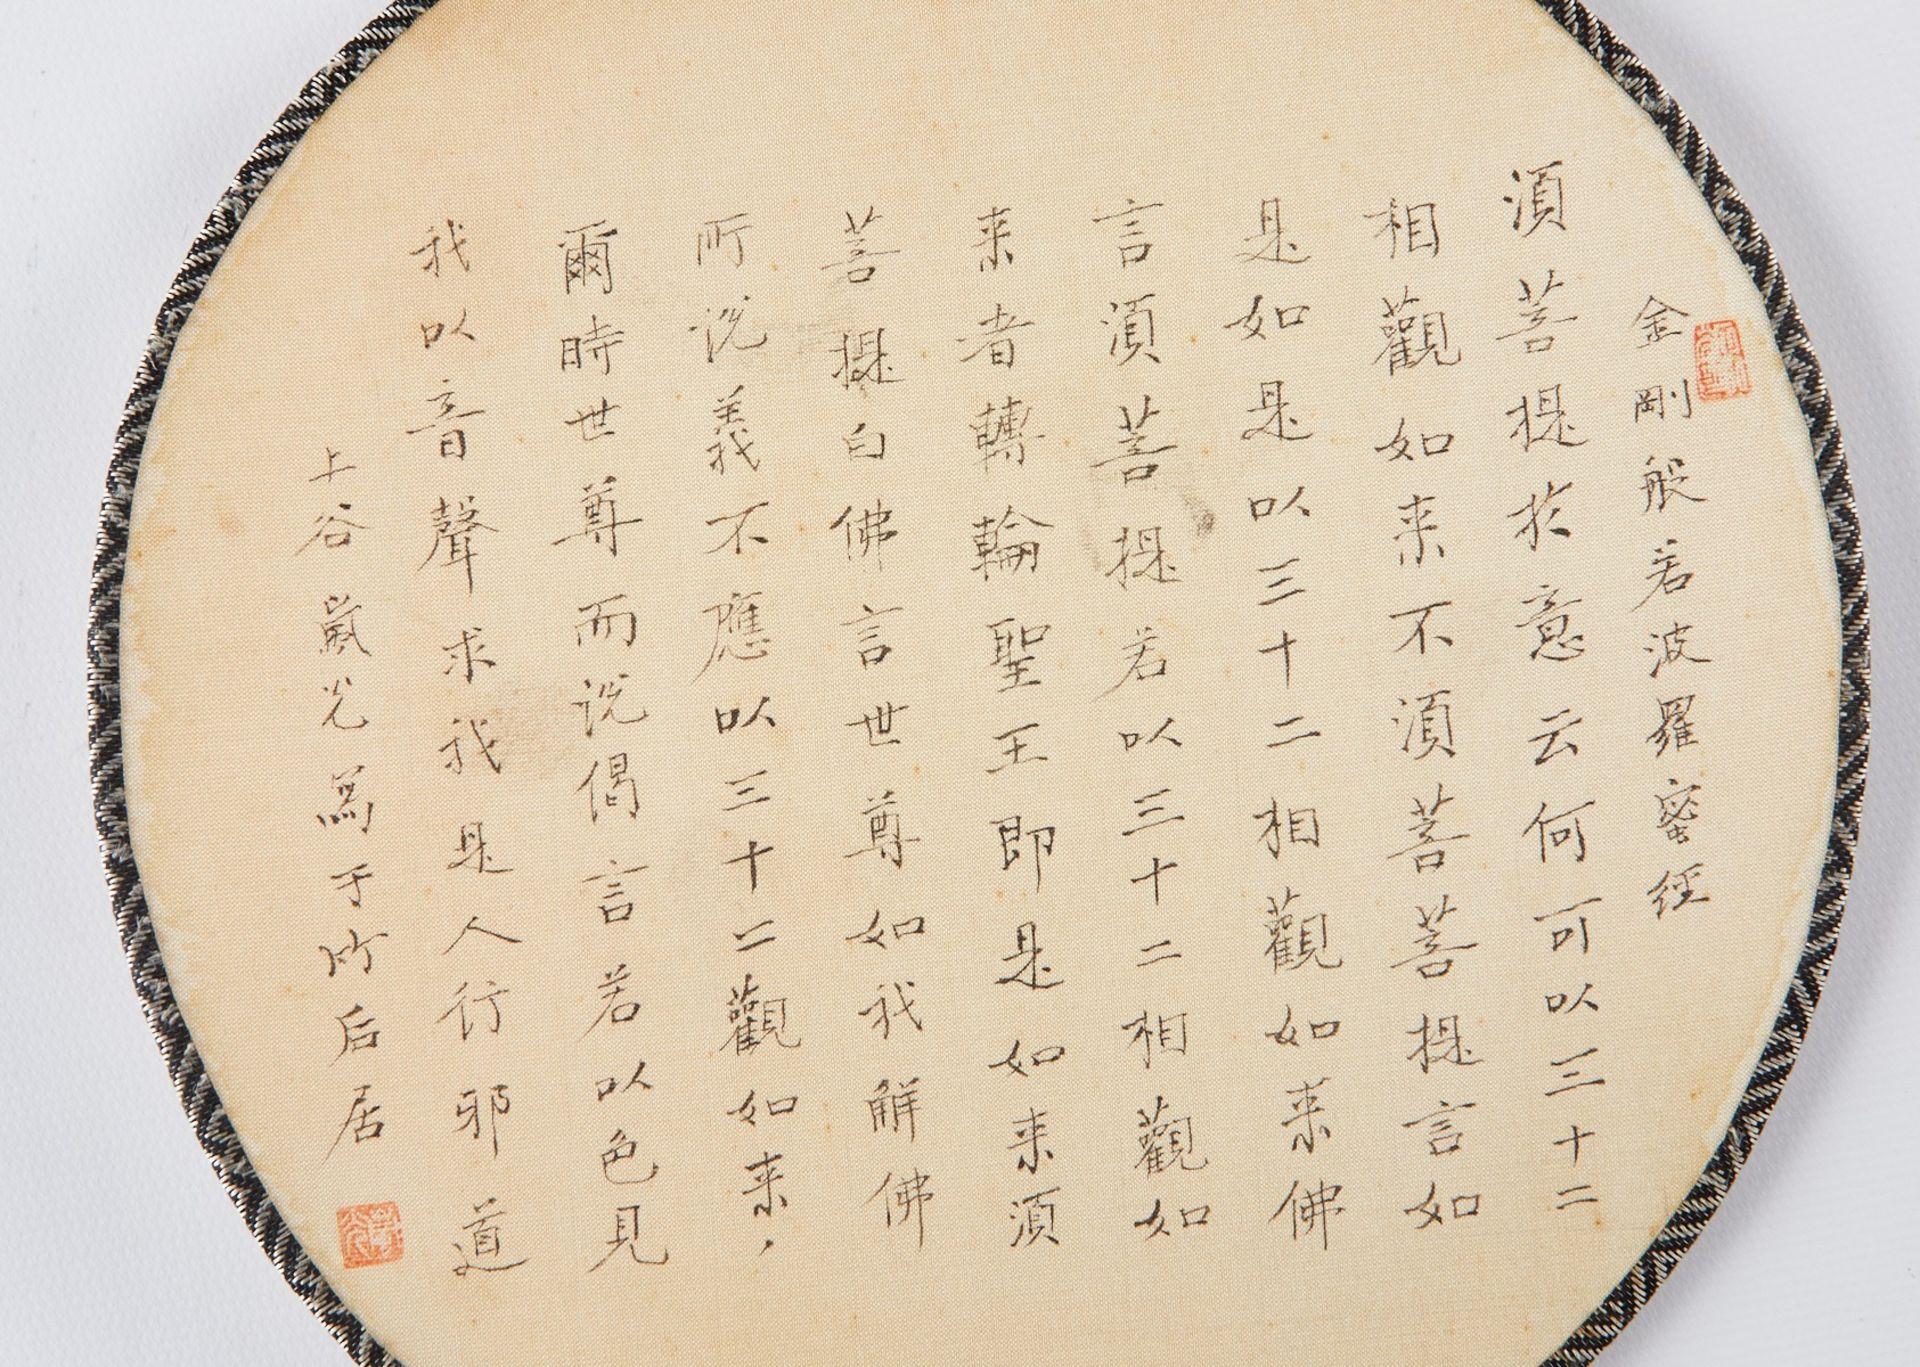 金剛般若波羅蜜經
須菩提於意云何可以三十二
相觀如来不須菩菩提言如
是如是以三十二相觀如来佛
言須菩提若以三十二相觀如
来者轉輪聖王即是如来須
菩提白佛言世尊如我解佛
所說義不應以三十二觀如来，
爾時世尊而說偈言若以色見
我以音聲求我是人行邪道
上谷 光寫于 后居